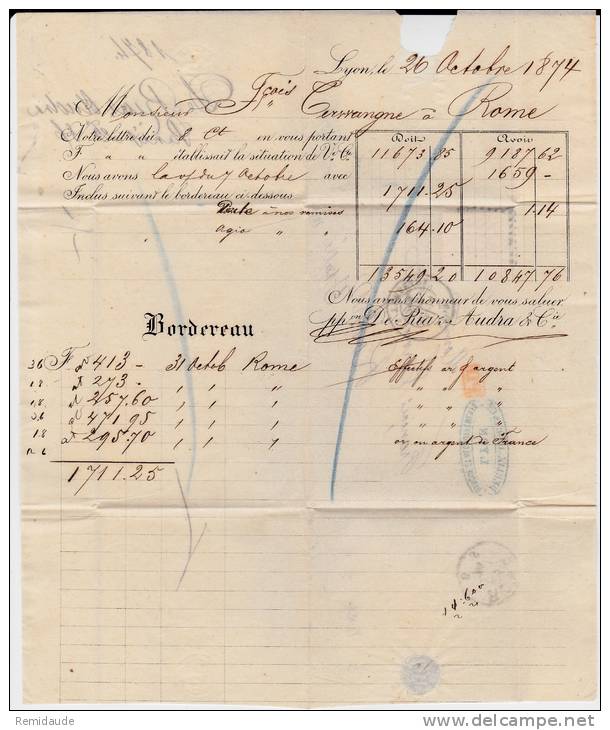 Lyon, le 26 Octobre 1874
Monsieur Fçois à Rome
Notre lettre du 8 Ct en vous portant
F " " établissait la situation de V/ Cte
Nous avons du 7 Octobre avec
Inclus suivant le bordereau ci-dessous
Perte à nos remises
" agio " "
Doit Avoir
11673.85 9187 62
1659 -
1711.25
1.14
164.10
13549.20 10847.76
Nous avons l'honneur de vous saluer
ppon De Riaz Audra & Cie
Bordereau
36 F 413 - 31 Octob Rome Effectifs or & argent
18 273 - " " " " " "
257.60 " " " " " "
36 471.95 " " " " " "
18 295.70 " " " or ou argent de France
1711.25
1874
Remidaude
www.delcampe.net